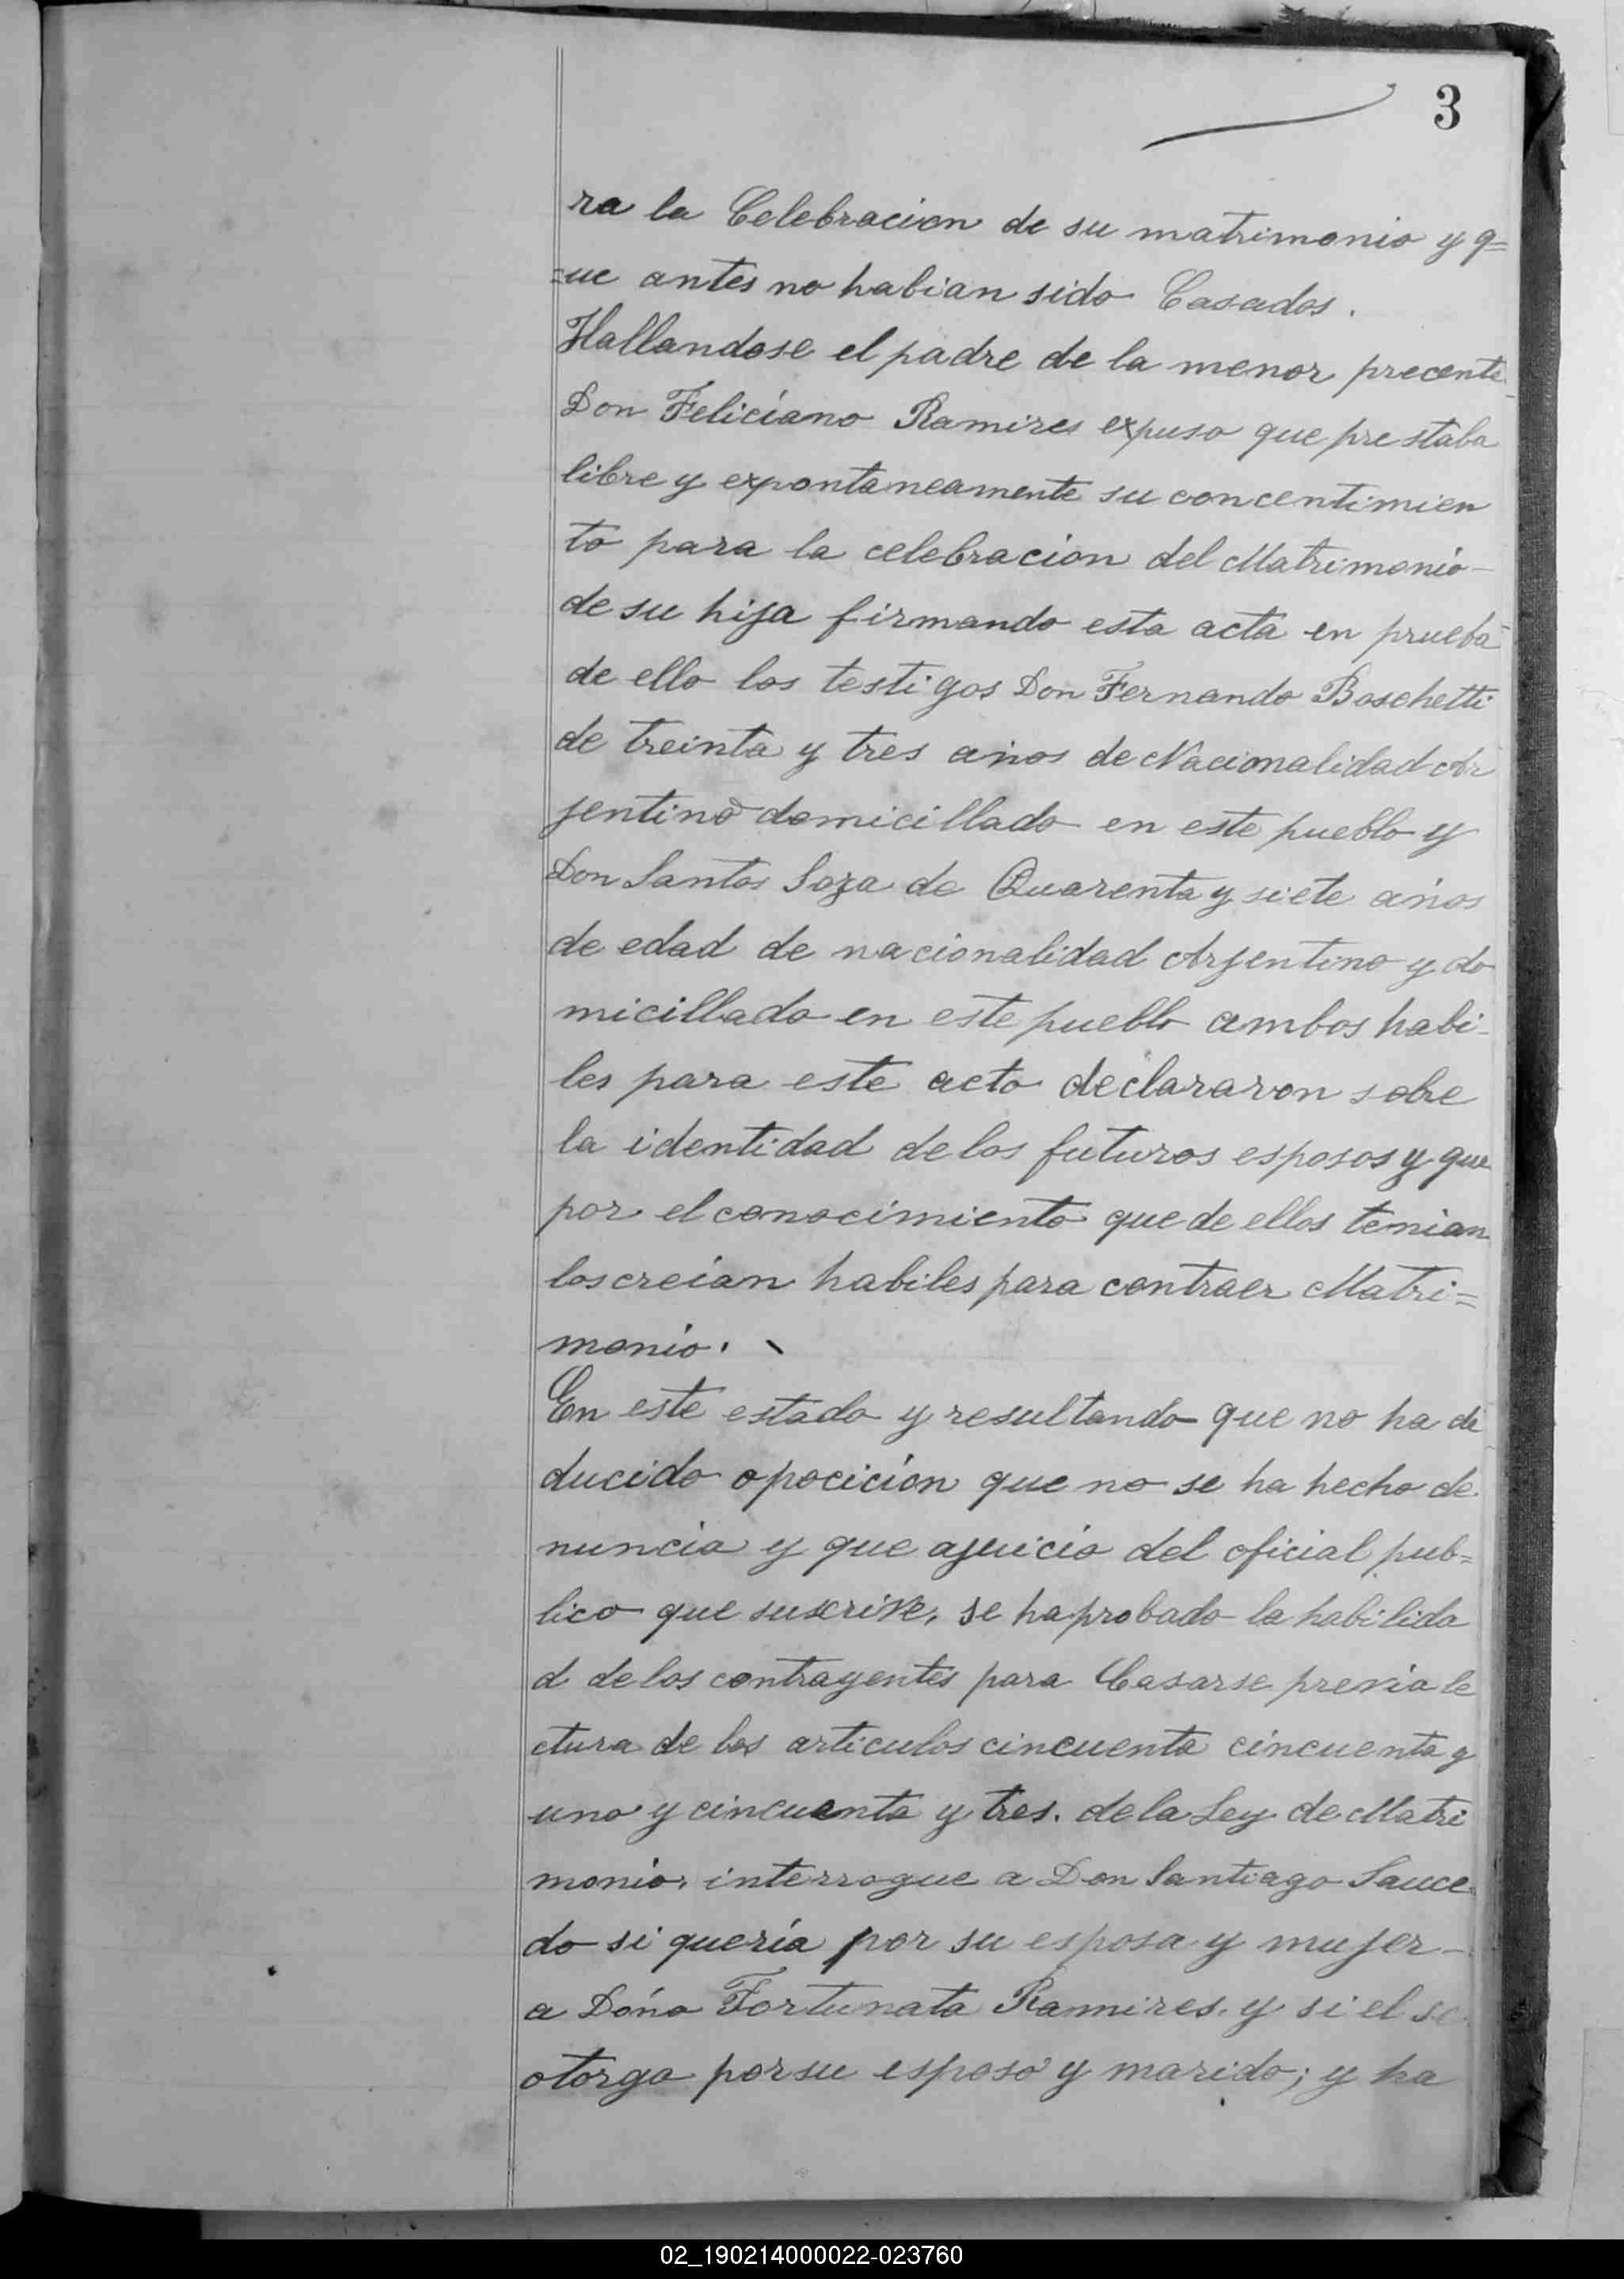 3
ra la Celebracion de su matrimonio y q=
=ue antes no habian sido Casados.
Hallandose el padre de la menor precente
Don Feliciano Ramires expuso que prestaba
libre y expontaneamente su concentimien
to para la celebracion del Matrimonio-
de su hija firmando esta acta en prueba
de ello los testigos Don Fernando Boschetti
de treinta y tres años de Nacionalidad Ar
jentino domicillado en este pueblo y
Don Santos Soza de Quarenta y siete años
de edad de nacionalidad Arjentino y do
micillado en este pueblo ambos habi-
les para este acto declararon sobre
la identidad de los futuros esposos y que
por el conocimiento que de ellos tenian
los creian habiles para contraer Matri=
monio.
En este estado y resultando que no ha de
ducido opocicion que no se ha hecho de
nuncia y que ajuicio del oficial pub=
lico que suscrive, se ha probado la habilida
d de los contrayentes para Casarse previa le
ctura de los articulos cincuenta cincuenta y
uno y cincuenta y tres. de la Ley de Matri
monio, interrogue a Don Santiago Sauce
do si quería por su esposa y mujer-
a Doña Fortunata Ramires. y si el se
otorga por su esposo y marido; y ha
02_190214000022-023760